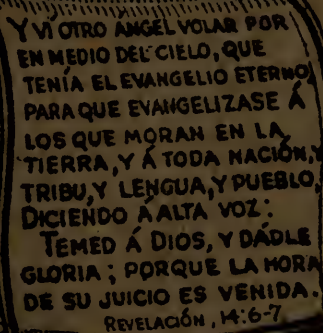 Y VÍ OTRO ÁNGEL VOLAR POR
EN MEDIO DEL CIELO, QUE
TENÍA EL EVANGELIO ETERNO,
PARA QUE EVANGELIZASE Á
LOS QUE MORAN EN LA
TIERRA, Y Á TODA NACIÓN, Y
TRIBU, Y LENGUA, Y PUEBLO,
DICIENDO Á ALTA VOZ:
TEMED Á DIOS, Y DÁDLE
GLORIA; PORQUE LA HORA
DE SU JUICIO ES VENIDA.
REVELACIÓN, 14:6-7